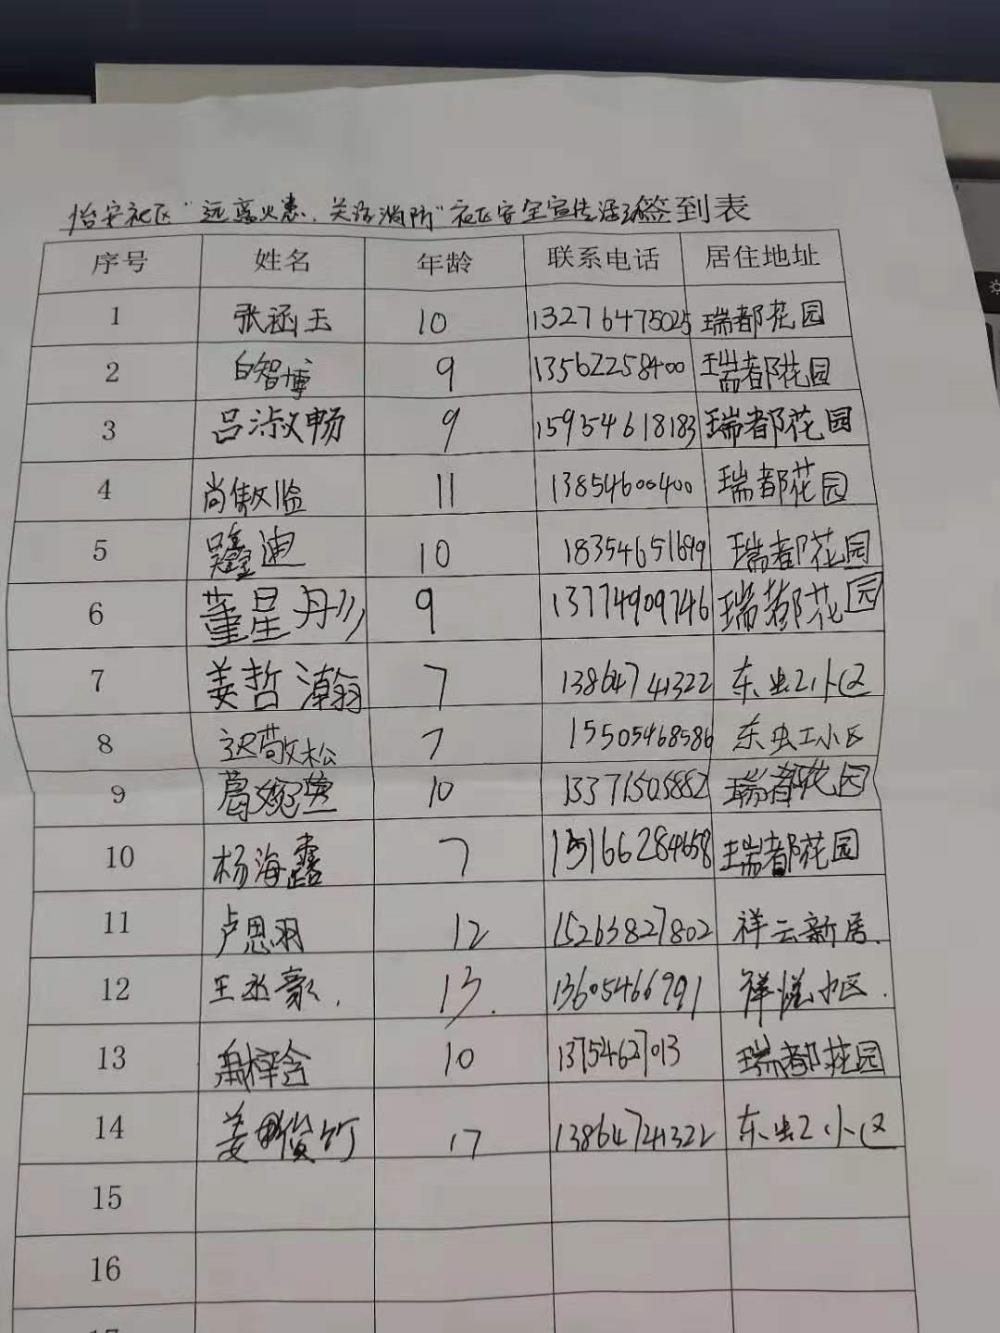 怡安社区"远离火患、关注消防"社区安全宣传活动签到表
序号 姓名 年龄 联系电话 居住地址
1 张涵玉 10 13276475025 瑞都花园
2 白智博 9 13562258400 瑞都花园
3 吕淑畅 9 15954618183 瑞都花园
4 尚傲临 11 13854600400 瑞都花园
5 鑫迪 10 18354651699 瑞都花园
6 董星彤 9 13774909746 瑞都花园
7 姜哲瀚 7 13864741322 东虫2小区
8 迟敬松 7 15505468586 东虫工小区
9 葛婉莹 10 13371505882 瑞都花园
10 杨海露 7 15166284658 瑞都花园
11 卢思羽 12 15263827802 祥云新居.
12 王丞豪. 13. 13605466791 祥滋小区.
13 梓含 10 13754627013 瑞都花园
14 姜俊竹 17 13864741322 东虫2小区
15
16